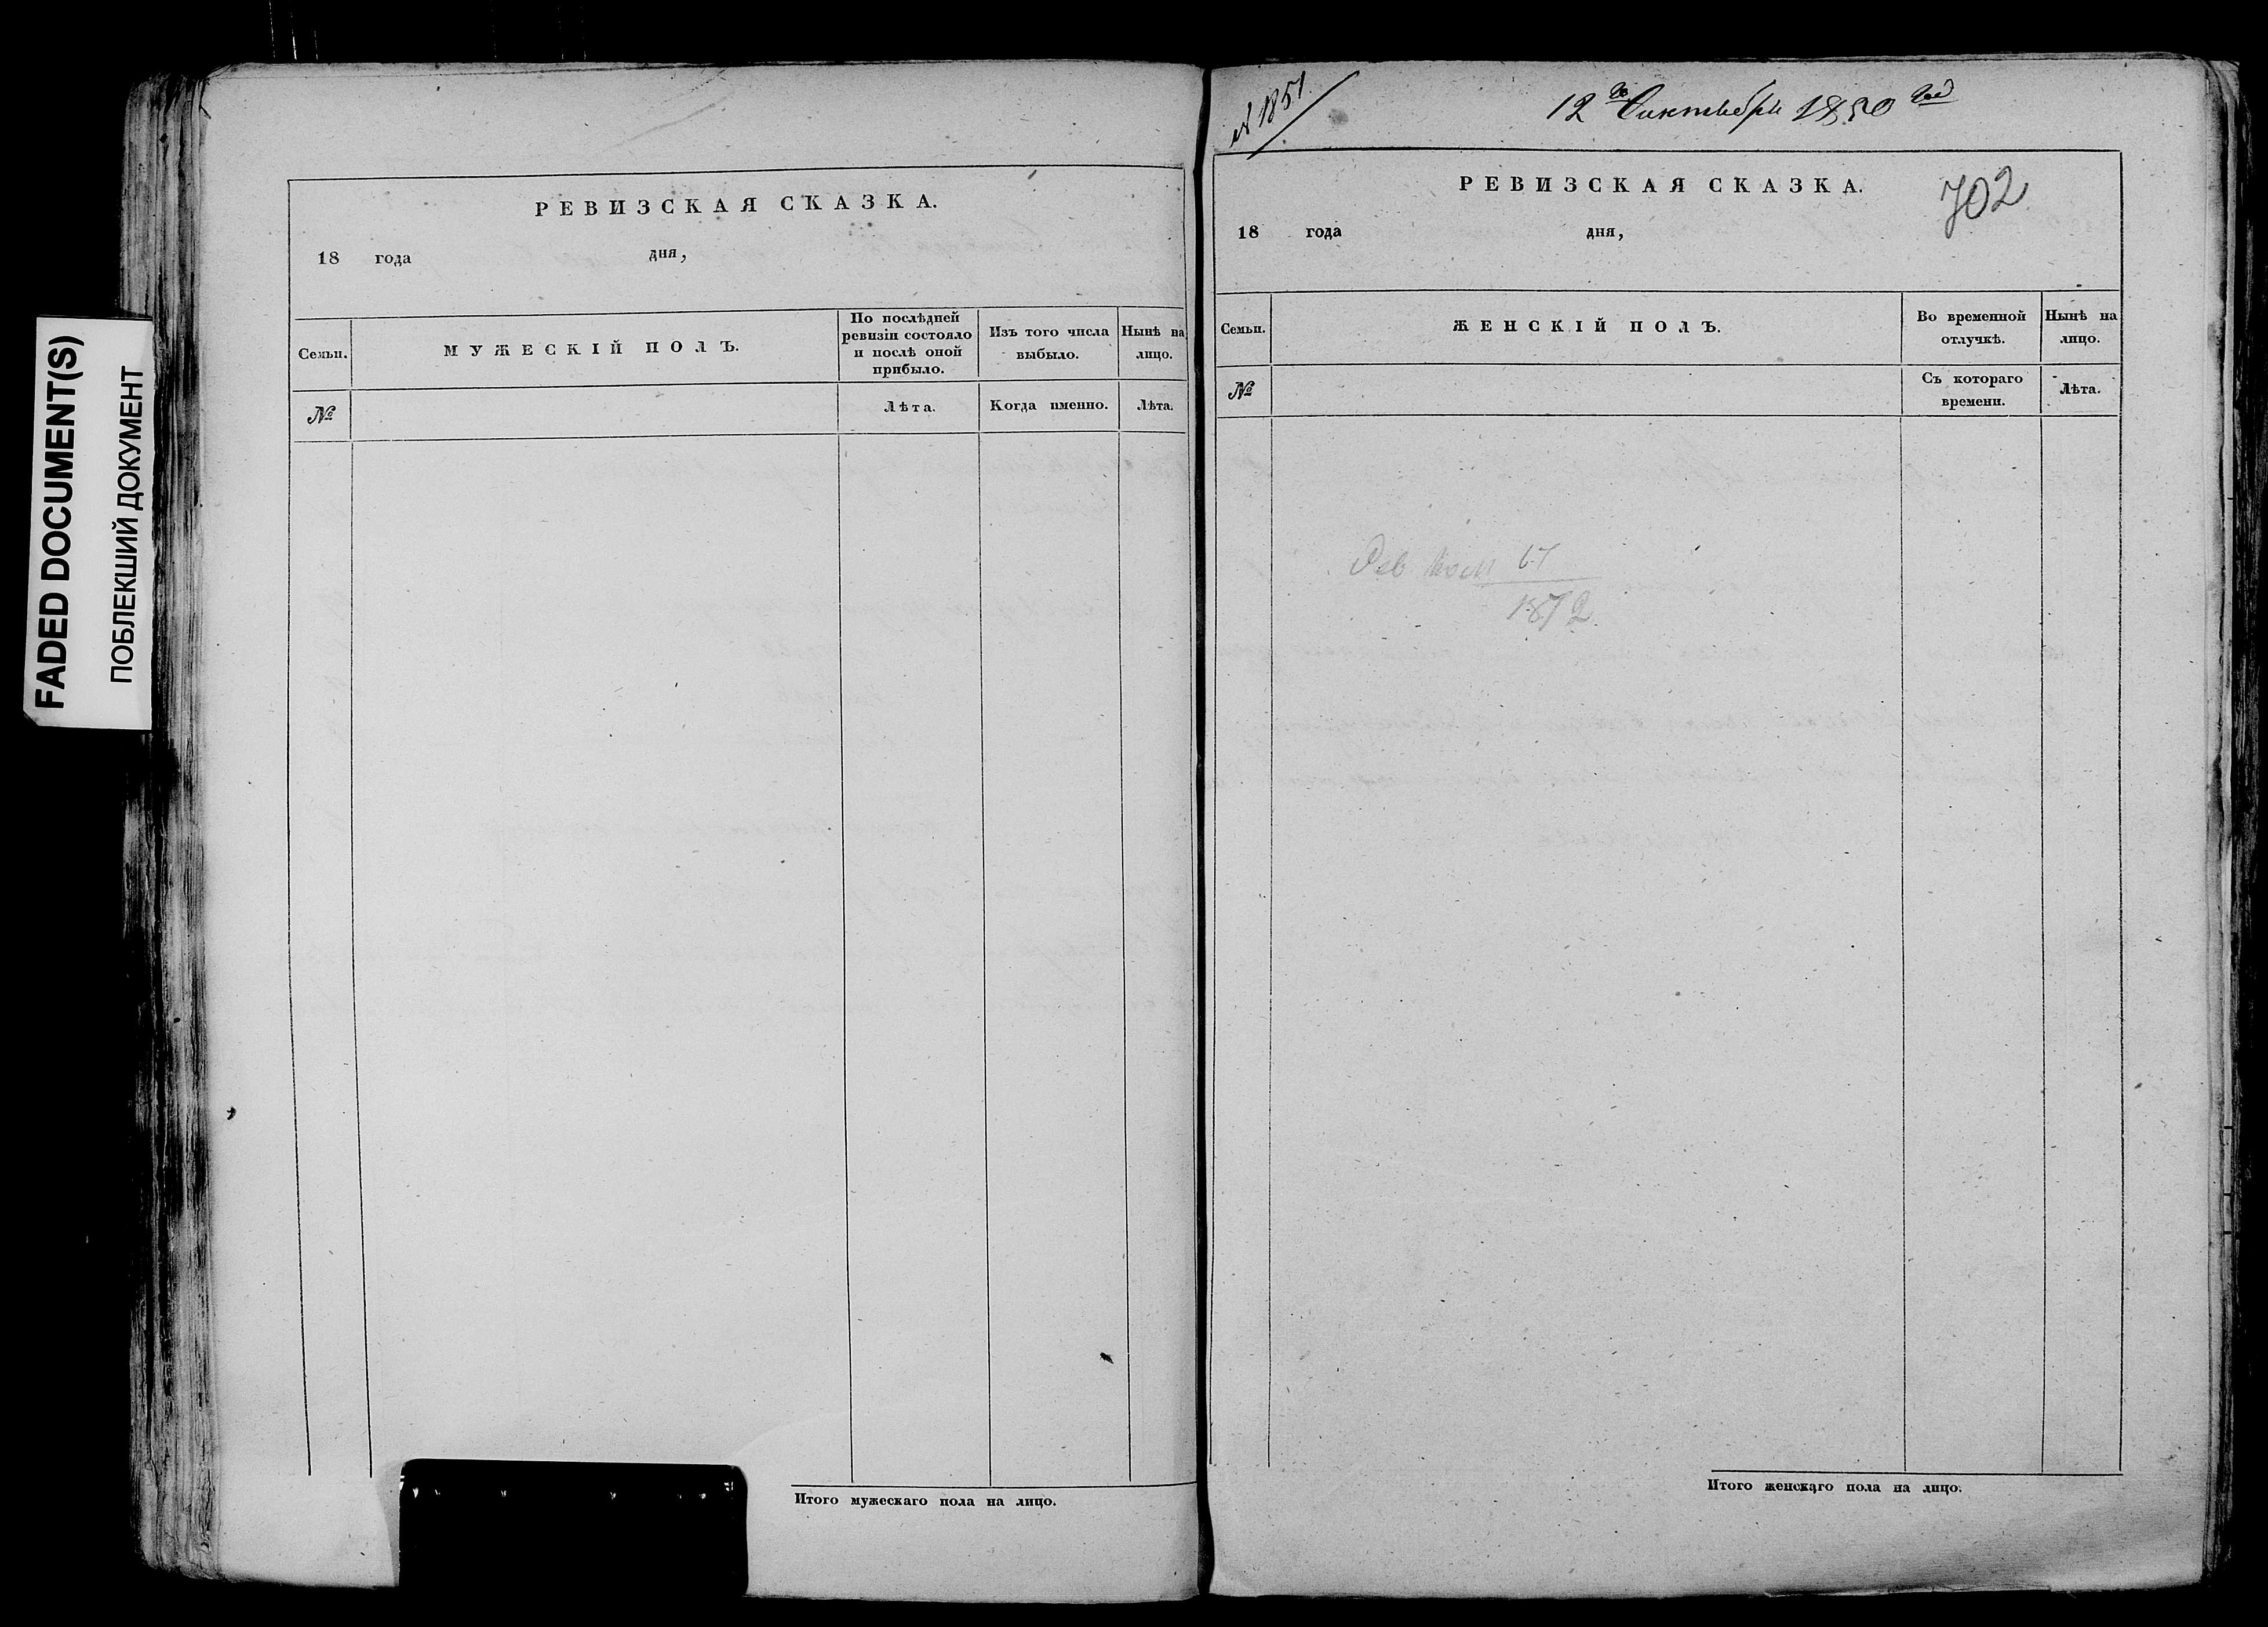 FADED DOCUMENT(S)
ПОБЛЕКШИЙ ДОКУМЕНТ
РЕВИЗСКАЯ СКАЗКА.
18 года дня,
Семьи.
МУЖЕСКІЙ ПОЛЪ.
По послѣдней
ревизіи состояло
и послѣ оной
прибыло.
Изъ того числа
выбыло.
Нынѣ на
лицо.
№
Лѣта.
Когда именно.
Лѣта.
Итого мужескаго пола на лицо.
1851.
12 1850
РЕВИЗСКАЯ СКАЗКА.
702
18 года дня,
Семьи.
ЖЕНСКІЙ ПОЛЪ.
Во временной
отлучкѣ.
Нынѣ на
лицо.
№
Съ котораго
времени.
Лѣта.
1872
Итого женскаго пола на лицо.